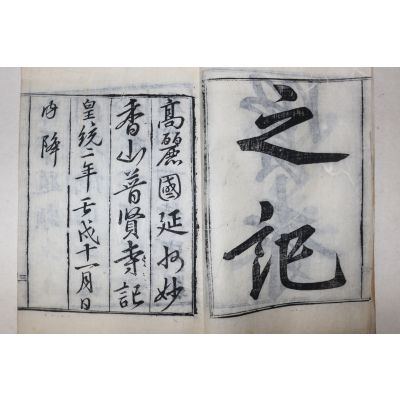 之記
高麗國延州妙
香山普賢寺記
皇統一年壬戌十一月日
內降